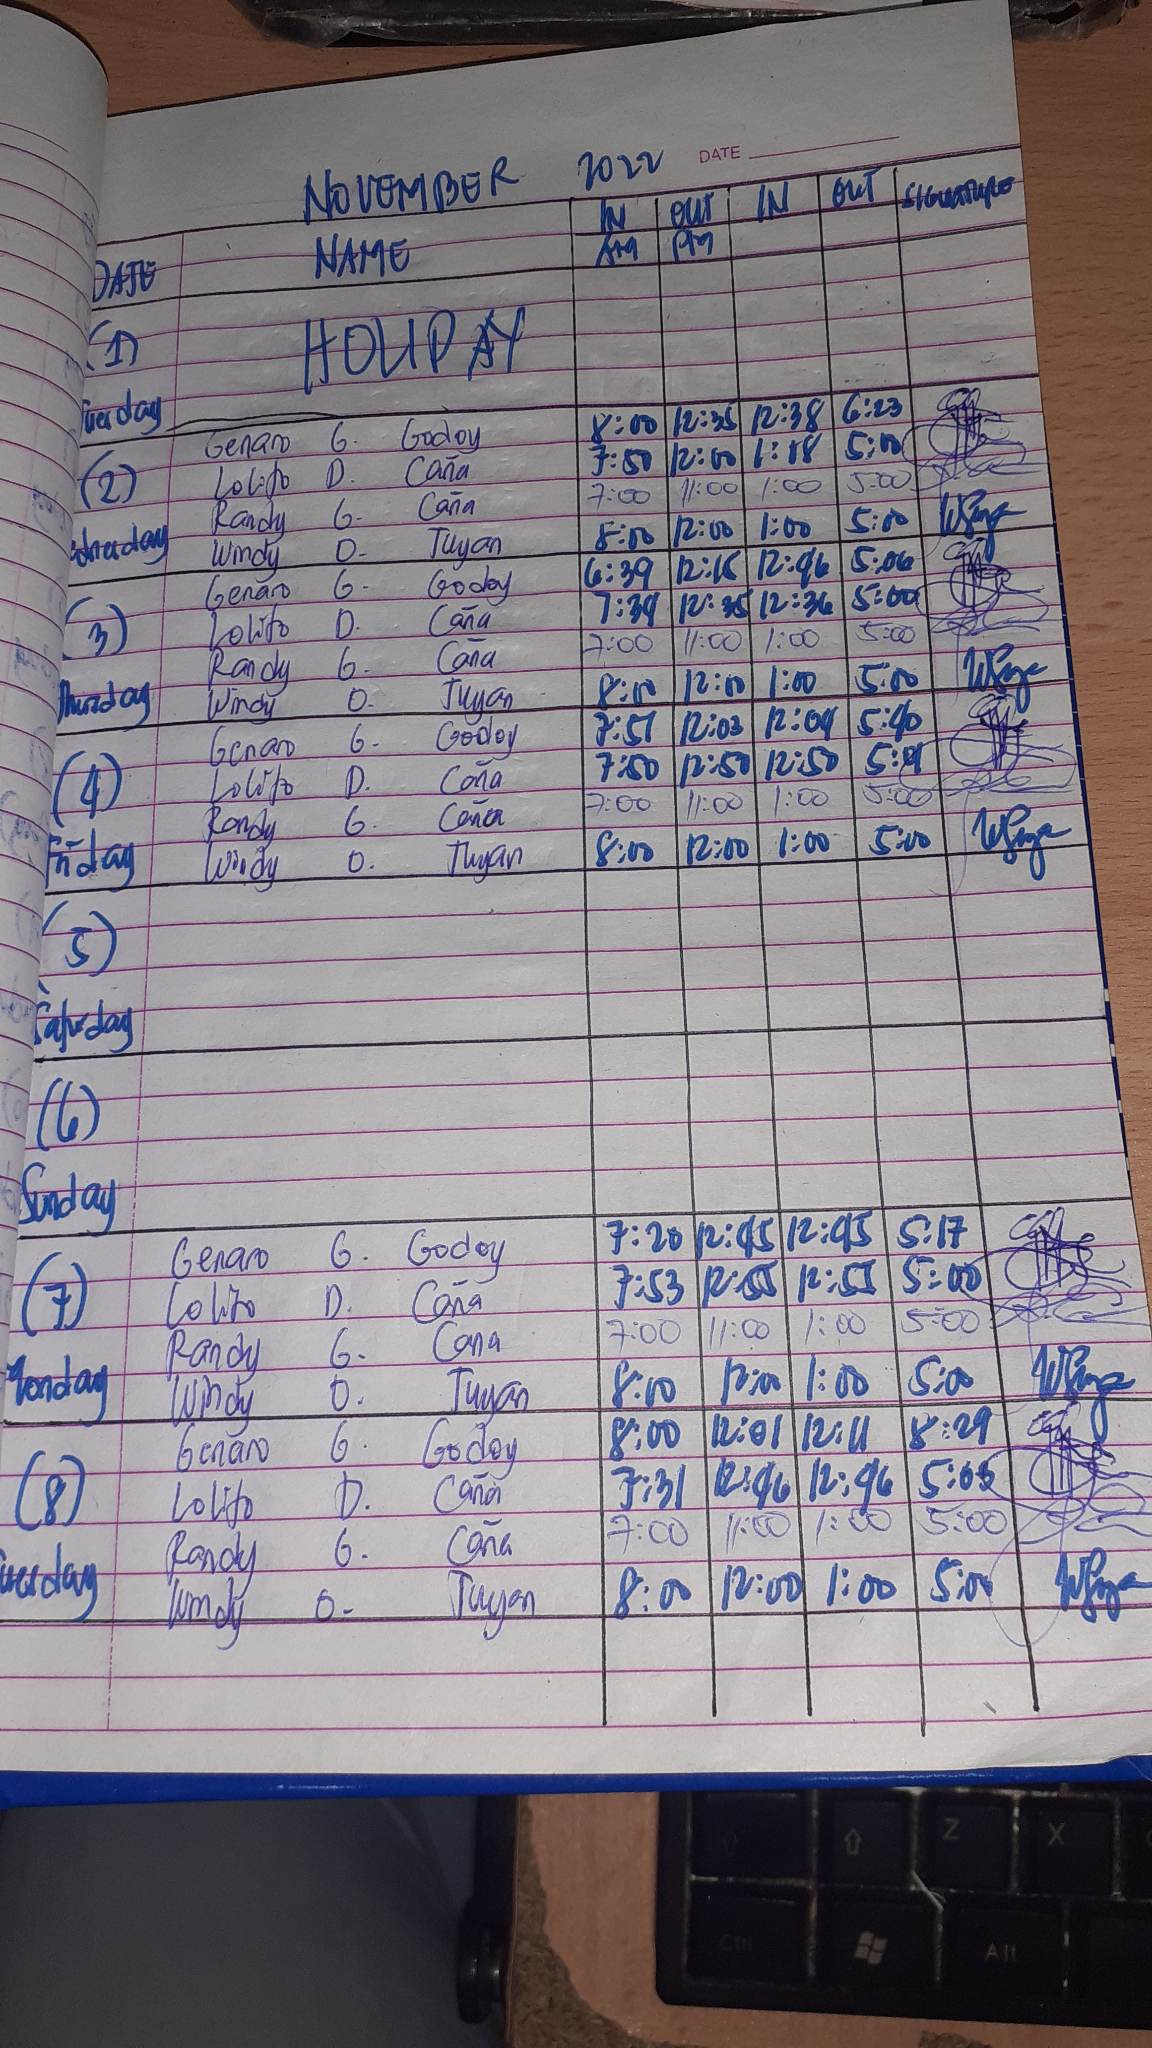 DATE
NOVEMBER 2022
DATE NAME IN OUT IN OUT SIGNATURE
AM PM
(1) HOLIDAY
Tuesday
Genaro G. Godoy 8:00 12:35 12:38 6:23
(2) Lolito D. Caña 7:50 12:00 5:00
Randy G. Caña 7:00 11:00 1:00 5:00
Windy O. Tuyan 8:00 12:00 1:00 5:00
Genaro G. Godoy 6:39 12:46 5:06
(3) Lolito D. Caña 12:35 12:36 5:00
Randy G. Caña 7:00 11:00 1:00 5:00
Thursday Windy O. Tuyan 8:00 12:00 1:00 5:00
Genaro G. Godoy 7:51 12:03 12:04 5:40
(4) Lolito D. Caña 7:50 12:50 12:50
Randy G. Caña 7:00 11:00 1:00 5:00
Friday Windy O. Tuyan 8:00 12:00 1:00 5:00
(5)
Saturday
(6)
Sunday
Genaro G. Godoy 7:20 12:45 12:45 5:17
(7) Lolito D. Caña 7:53 12:55 12:55 5:00
Randy G. Cana 7:00 11:00 1:00 5:00
Monday Windy O. Tuyan 8:00 12:00 1:00 5:00
Genaro G. Godoy 8:00 12:01 12:11 8:29
(8) Lolito D. Caña 7:31 12:46 12:46 5:05
Randy G. Caña 7:00 11:00 1:00 5:00
Windy O. Tuyan 8:00 12:00 1:00 5:00
Z X
Ctrl Alt